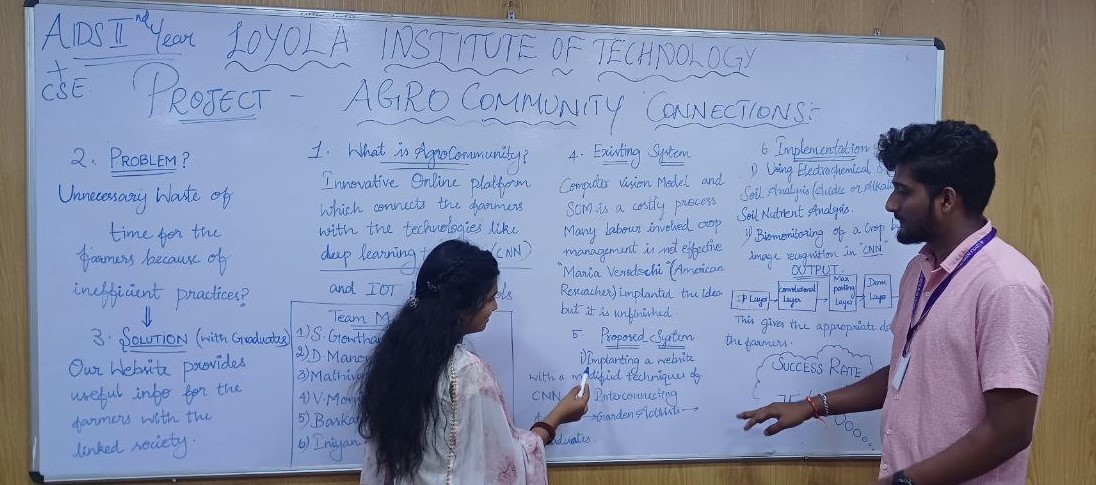 AIDS II nd Year
+
CSE
LOYOLA INSTITUTE OF TECHNOLOGY
PROJECT - AGRO COMMUNITY CONNECTIONS:-
2. PROBLEM?
Unnecessary Waste of
time for the
farmers because of
inefficient practices?
3. SOLUTION (with Graduates)
Our Website provides
useful info for the
farmers with the
linked society.
1. What is AgroCommunity?
Innovative Online platform
which connects the farmers
with the technologies like
deep learning (CNN)
and IOT
Team M
1) S. Gowtha
2) D. Mano
3) Mathiv
4) V. Mo
5) Baska
6) Iniyan
4. Existing System
Computer vision Model and
SOM is a costly process
Many Labour involved crop
management is not effective
"Maria Verodschi" (American
Reseacher) implanted the idea
but it is unfinished
5. Proposed System
i) Implanting a website
with a modified techniques of
CNN Interconnecting
→Garden →
6. Implementation
i) Using Electrochemical
Soil Analysis (Acidic or Alkali
Soil Nutrient Analysis.
ii) Biomonitoring of a Crop b
image recognition in "CNN"
OUTPUT.
I/P Layer
Convolutional Layer
Max pooling Layer
Dense Layer
This gives the appropriate da
the farmers.
SUCCESS RATE